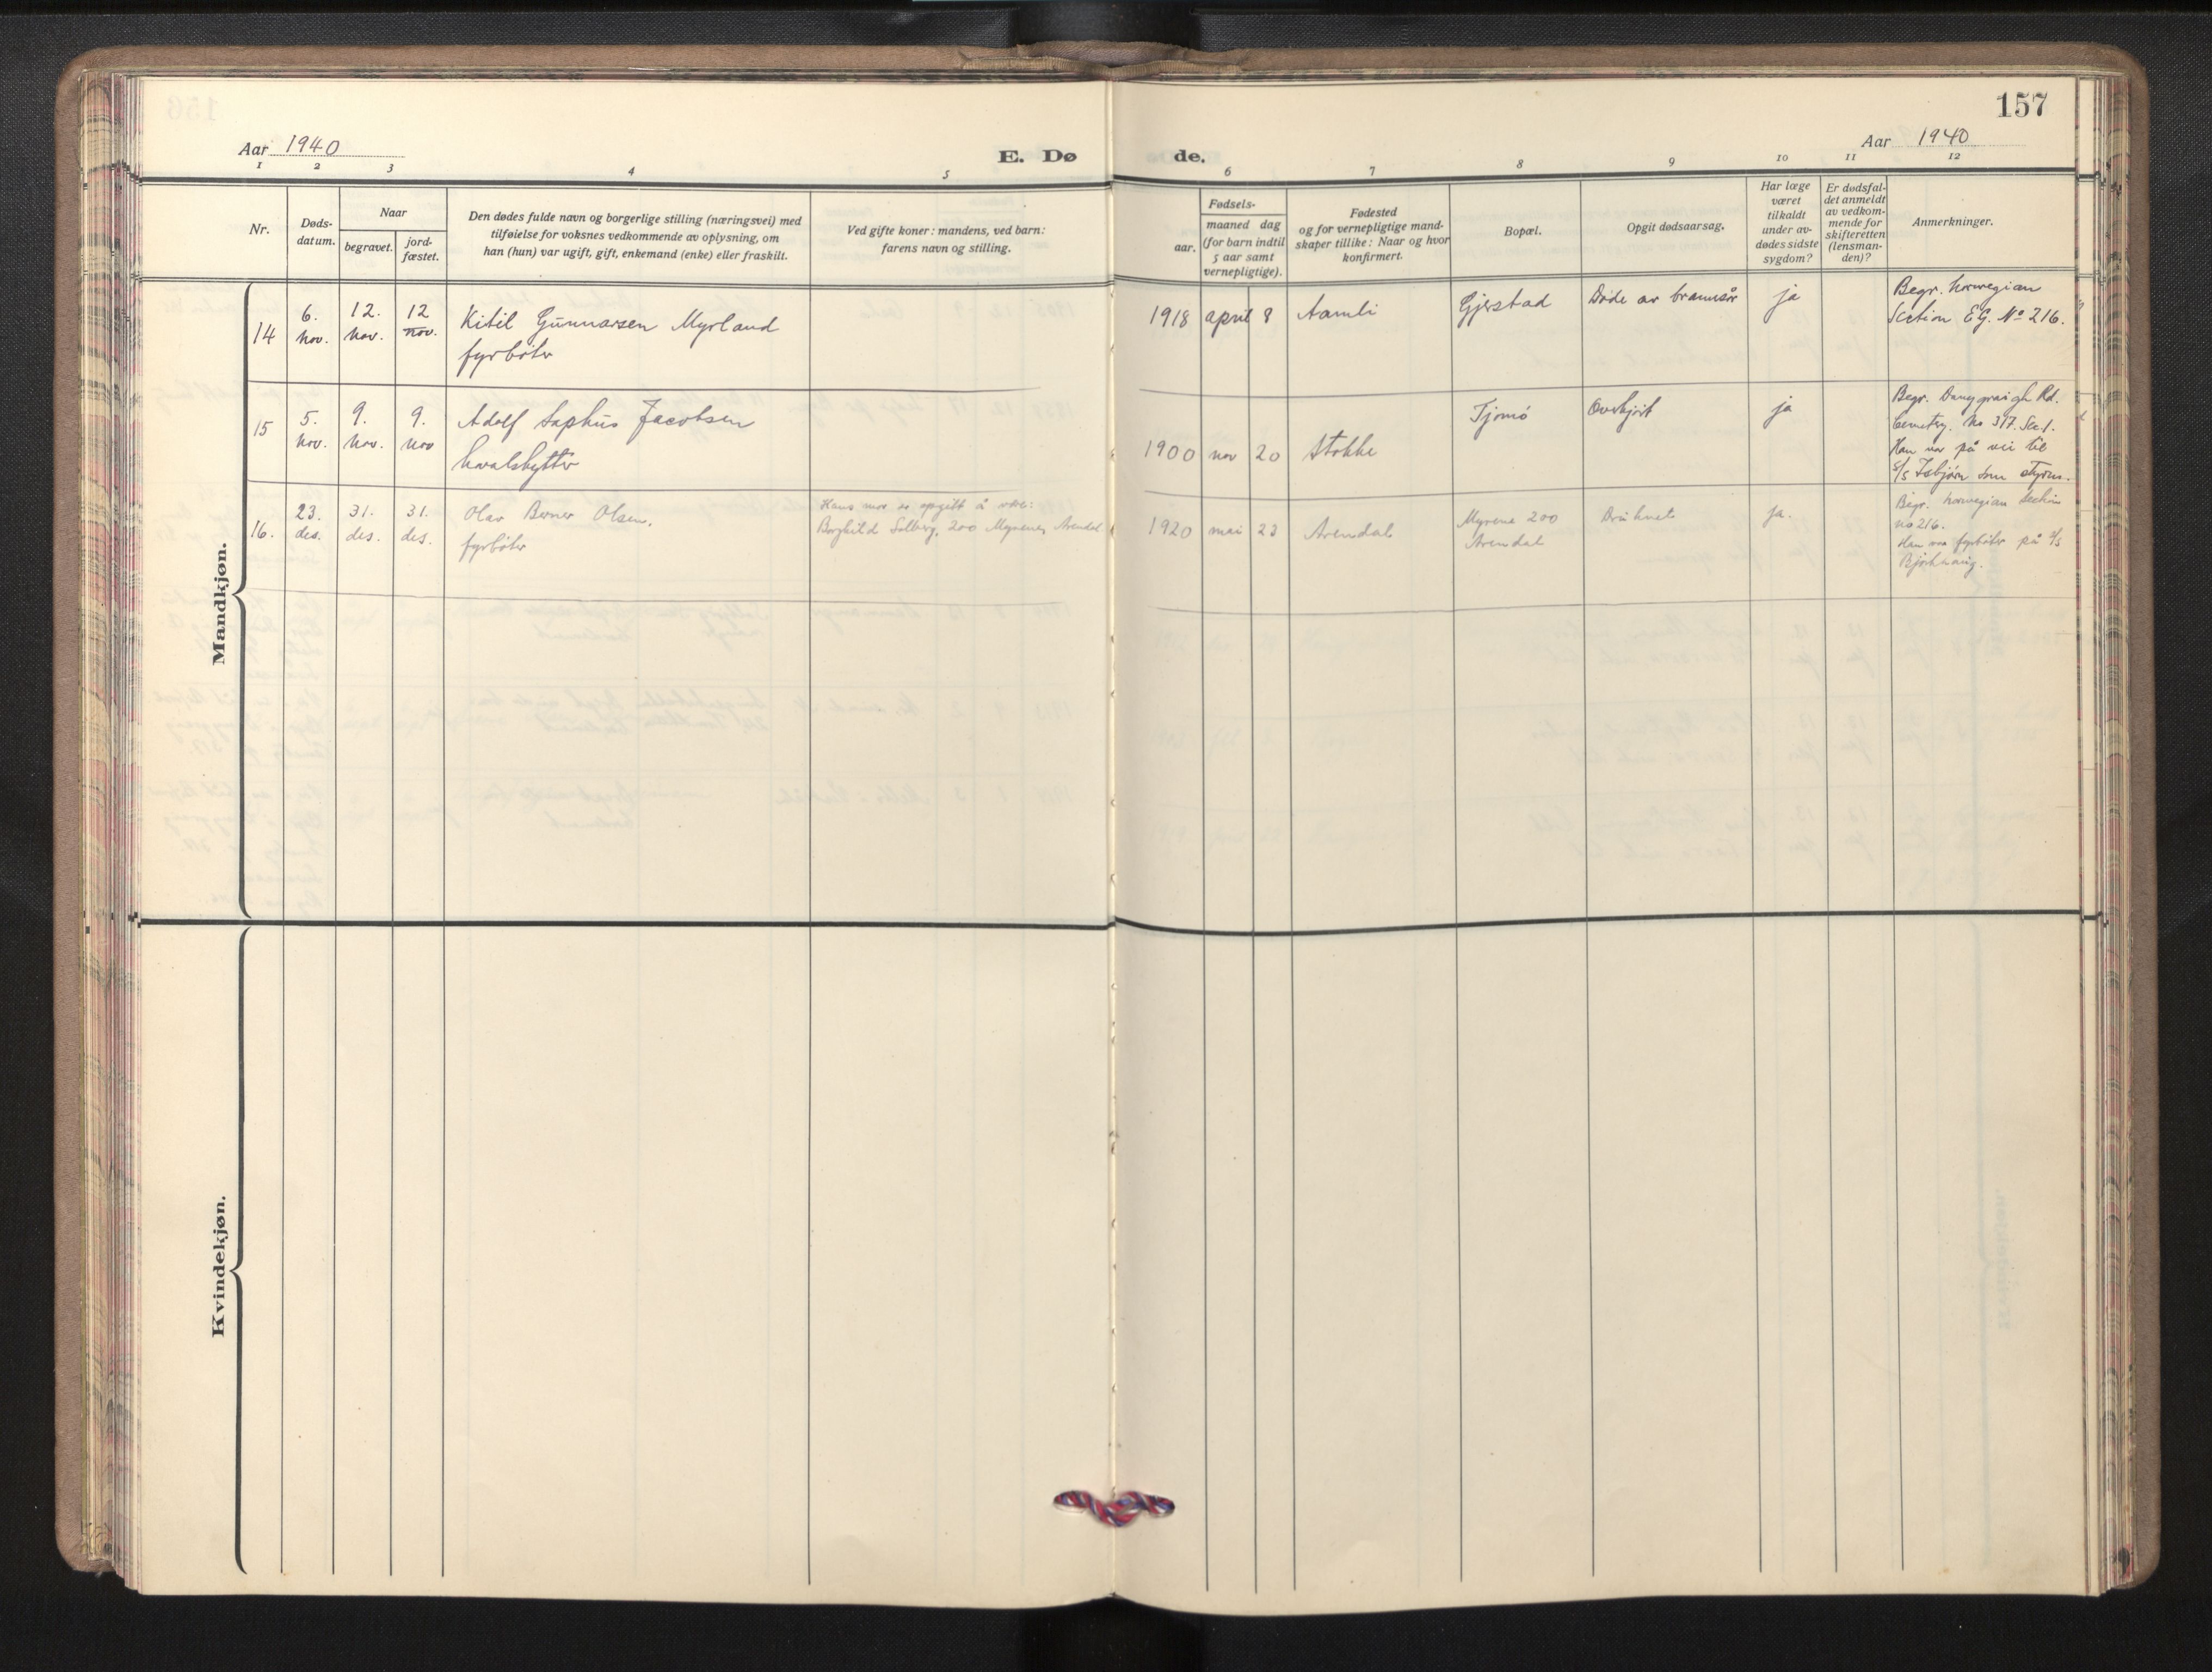 157
Aar 1940
E. Dø
de.
Aar 1940
1 2 3 4 5 6 7 8 9 10 11 12
Nr.
Døds-
datum.
Naar
begravet.
jord-
fæstet.
Den dødes fulde navn og borgerlige stilling (næringsvei) med
tilføielse for voksnes vedkommende av oplysning, om
han (hun) var ugift, gift, enkemand (enke) eller fraskilt.
Ved gifte koner: mandens, ved barn:
farens navn og stilling.
Fødsels-
aar.
maaned dag
(for barn indtil
5 aar samt
vernepligtige).
Fødested
og for vernepligtige mand-
skaper tillike: Naar og hvor
konfirmert.
Bopæl.
Opgit dødsaarsag.
Har læge
været
tilkaldt
under av-
dødes sidste
sygdom?
Er dødsfal-
det anmeldt
av vedkom-
mende for
skifteretten
(lensman-
den)?
Anmerkninger.
Mandkjøn.
14
6.
nov.
12.
nov.
12
nov.
Kitil Gunnarsen Myrland
fyrbøter
1918 april 8
Aamli
Gjerstad
Døde av brannsår
ja
Begr. Norwegian
Section EG. No 216.
15
5.
nov.
9.
nov.
9.
nov
Adolf Sophus Jacobsen
hvalskytter
1900 nov 20
Stokke
Tjømø
Overkjørt
ja
Begr. Danygraigh Rd.
Cemetry. No 317. Sec 1.
Han var på vei til
s/s Isbjørn som styrm.
16.
23.
des.
31.
des.
31.
des.
Olav Berner Olsen.
fyrbøter
Hans mor er opgitt å være:
Borghild Solberg, 200 Myrene, Arendal
1920 mai 23
Arendal
Myrene 200
Arendal
Druknet
ja.
Begr. Norwegian Section
no 216.
Han var fyrbøter på s/s
Bjørkhaug.
Kvindekjøn.